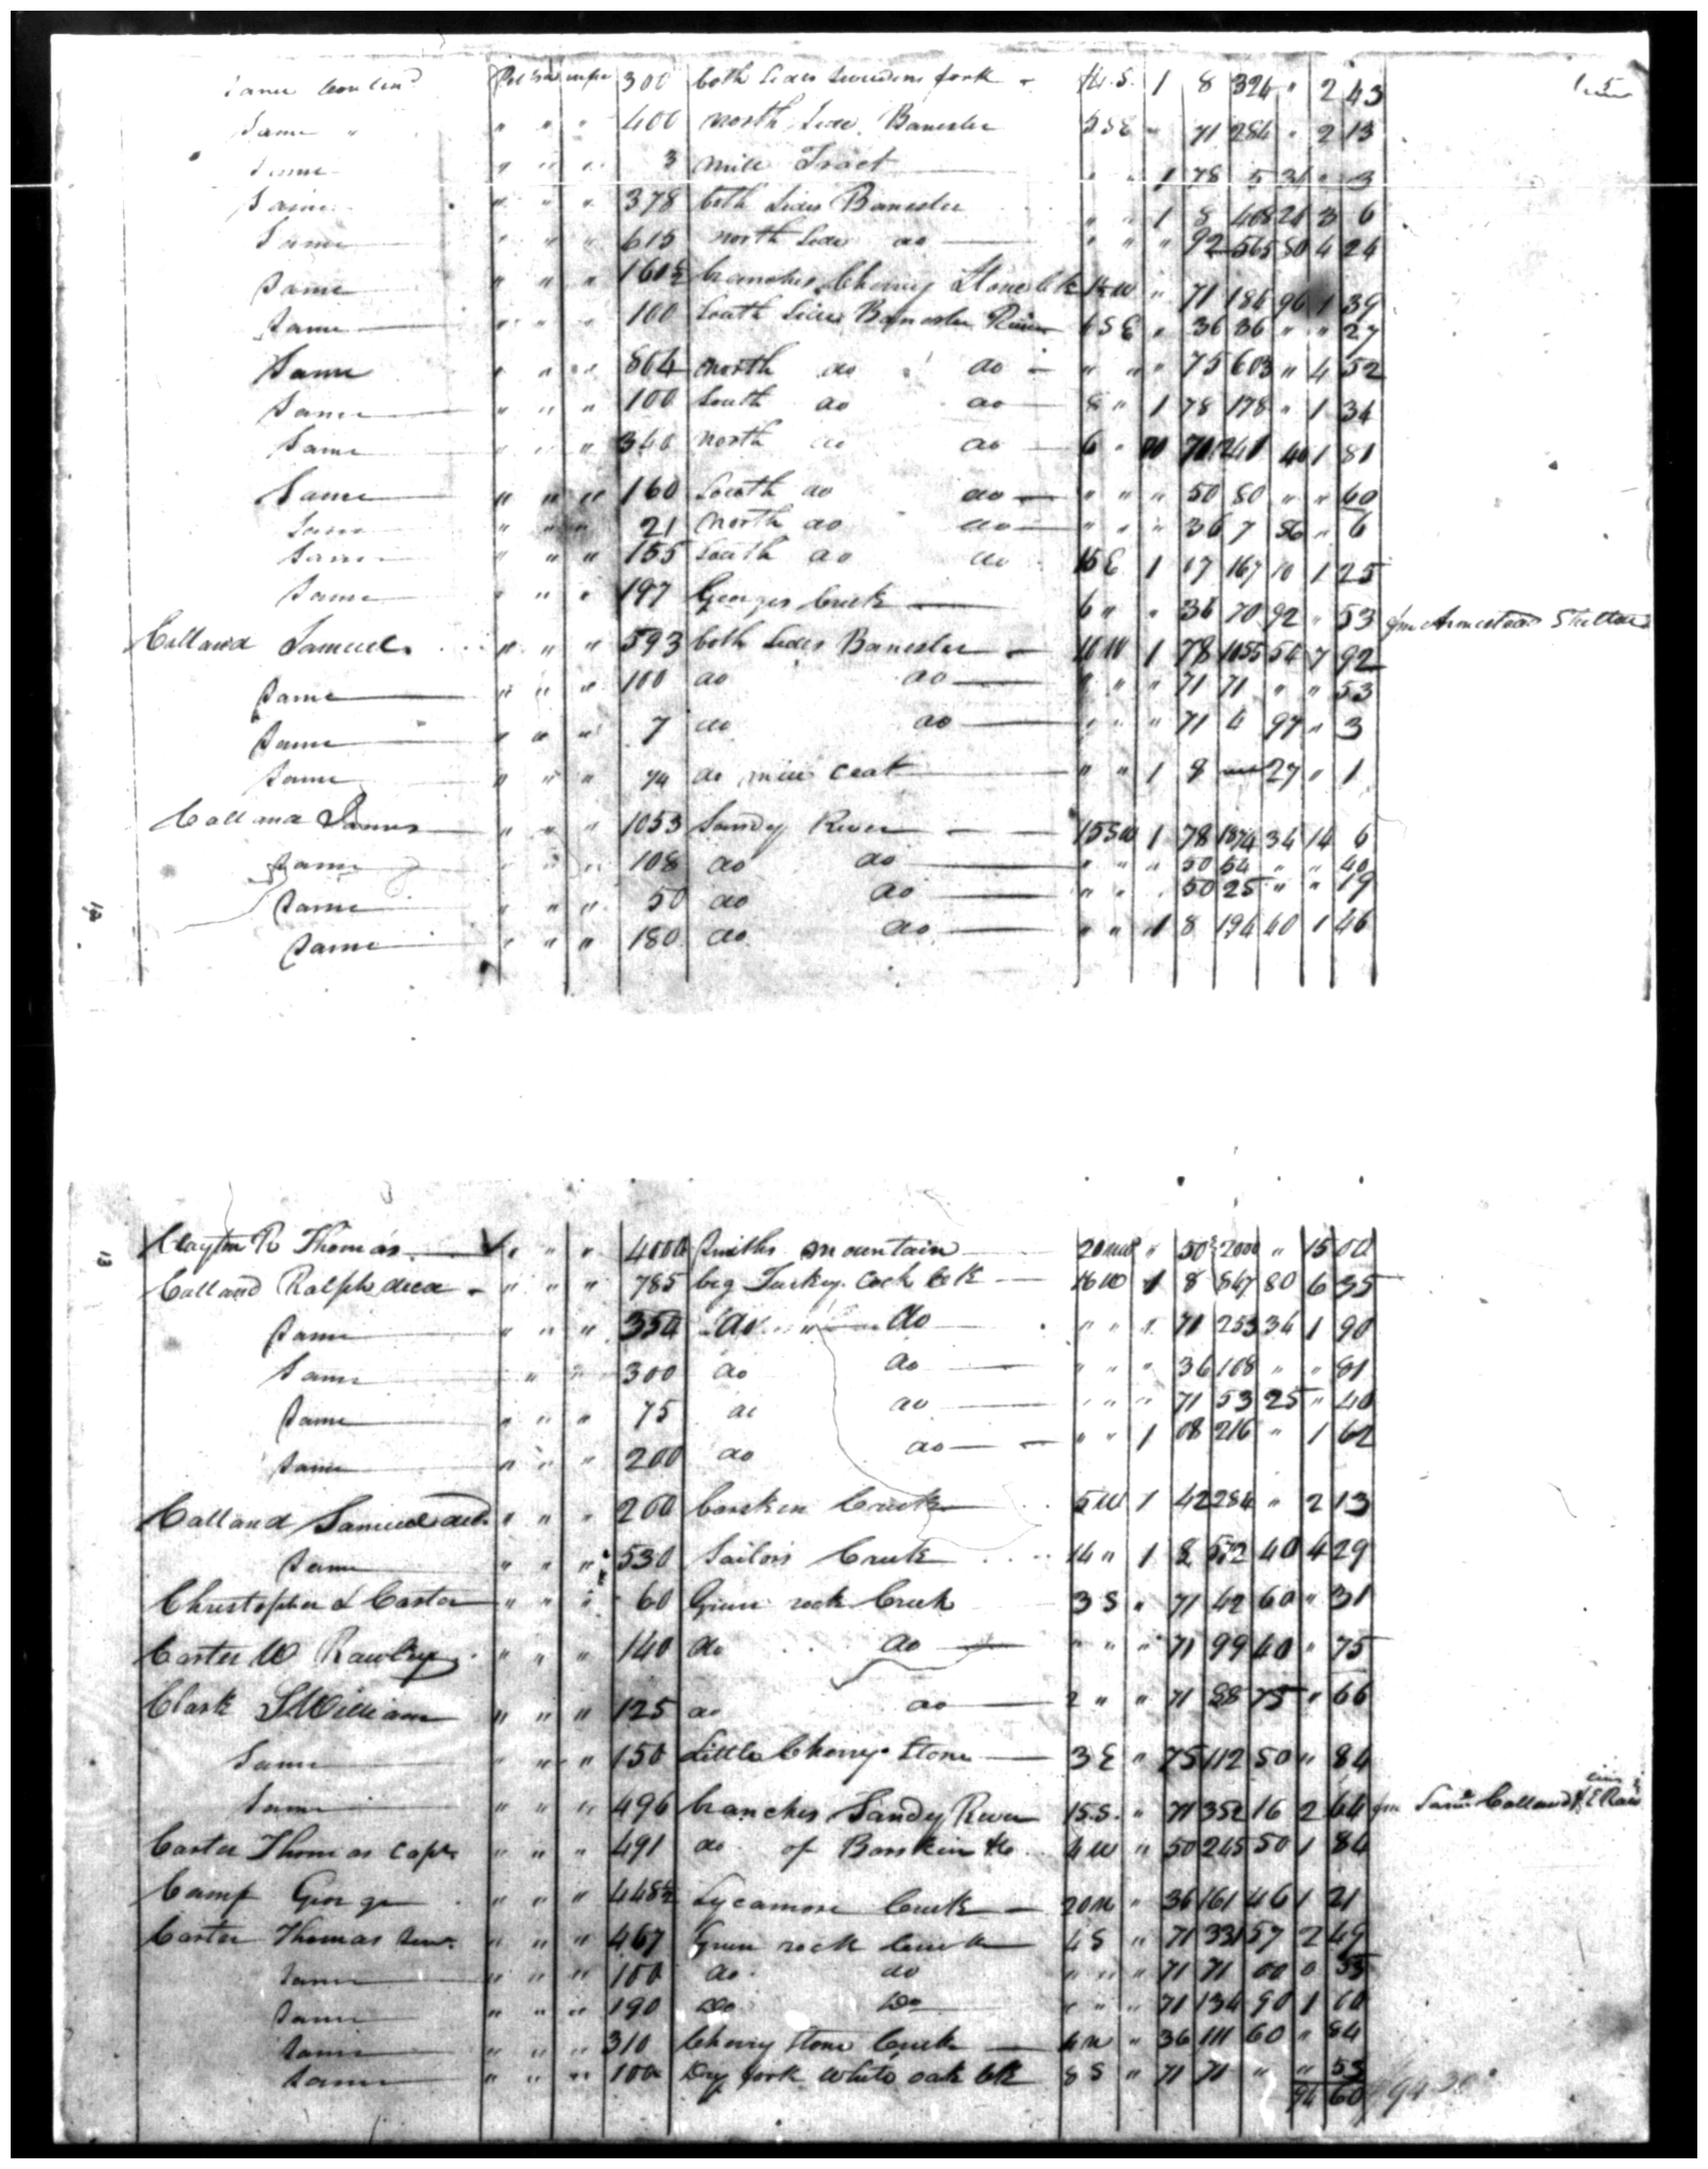 Same 300 both Sides fork - S. 1 8 324 " 2 43
Same " " " " 400 north Side Banester 5 S E " 71 284 " 2 13
Same " " " 3 mill Tract " " 1 78 5 34 " 3
Same " " " 378 both Sides Banester " " 1 8 408 24 3 6
Same " " " 615 north Side do " " " 92 565 80 4 24
Same " " " 160½ branches Cherry Stone Ck W " 71 184 96 1 39
Same " " " 100 South Side Banester River 6 S E " 36 36 " " 27
Same " " " 804 north do do " " " 75 603 " 4 52
Same " " " 100 South do do 8 " 1 78 178 " 1 34
Same " " " 340 north do do 6 " 71 241 40 1 81
Same " " " 160 South do do " " " 50 80 " " 60
Same " " " 21 north do do " " " 36 7 56 " 6
Same " " " 155 South do do 15 E 1 17 167 10 1 25
Same " " " 197 Georges Creek 6 " " 36 70 92 " 53 fm Armestead Shelton
Calland Samuel " " " 593 both Sides Banester 10 W 1 78 1055 54 7 92
Same " " " 100 do do " " " 71 71 " " 53
Same " " " 7 do do " " " 71 4 97 " 3
Same " " " ¼ do mill Ceat " " 1 8 27 " 1
Calland James " " " 1053 Sandy River 15 S W 1 78 1874 34 14 6
Same " " " 108 do do " " " 50 54 " " 40
Same " " " 50 do do " " " 50 25 " " 19
Same " " " 180 do do " " 1 8 194 40 1 46
12
13
Clayton R Thomas " " " 4000 Smiths mountain 20 NW " 50 2000 " 15 00
Calland Ralph decd " " " 785 big Turkey Cock Ck 16 W 1 8 847 80 6 35
Same " " " 354 do " do " " " 71 253 34 1 90
Same " " 300 do do " " " 36 108 " " 81
Same " " " 75 do do " " " 71 53 25 " 40
Same " " " 200 do do " " 1 08 216 " 1 62
Calland Samuel decd " " " 200 Barskin Creek 5 W 1 42 284 " 2 13
Same " " " 530 Sailors Creek 14 " 1 8 572 40 4 29
Christopher L Carter " " " 60 Green rock Creek 3 S " 71 42 60 " 31
Carter W Rawley " " " 140 do do " " " 71 99 40 " 75
Clark William " " " 125 do do 2 " " 71 88 75 " 66
Same " " " 150 Little Cherry Stone 3 E " 75 112 50 " 84
Same " " " 496 branches Sandy River 15 S " 71 352 16 2 64 fm Saml Calland
Carter Thomas Capt " " " 491 do of Barskin &c 4 W " 50 245 50 1 84
Camp George " " " 448½ Sycamore Creek 20 N " 36 161 46 1 21
Carter Thomas " " " 467 Green rock Creek 4 S " 71 331 57 2 49
Same " " " 100 do do " " " 71 71 00 0 53
Same " " " 190 Do Do " " " 71 134 90 1 60
Same " " " 310 Cherry Stone Creek 6 N " 36 111 60 " 84
Same " " " 100 Dry fork White oak Ck 8 S " 71 71 " " 53
94 60